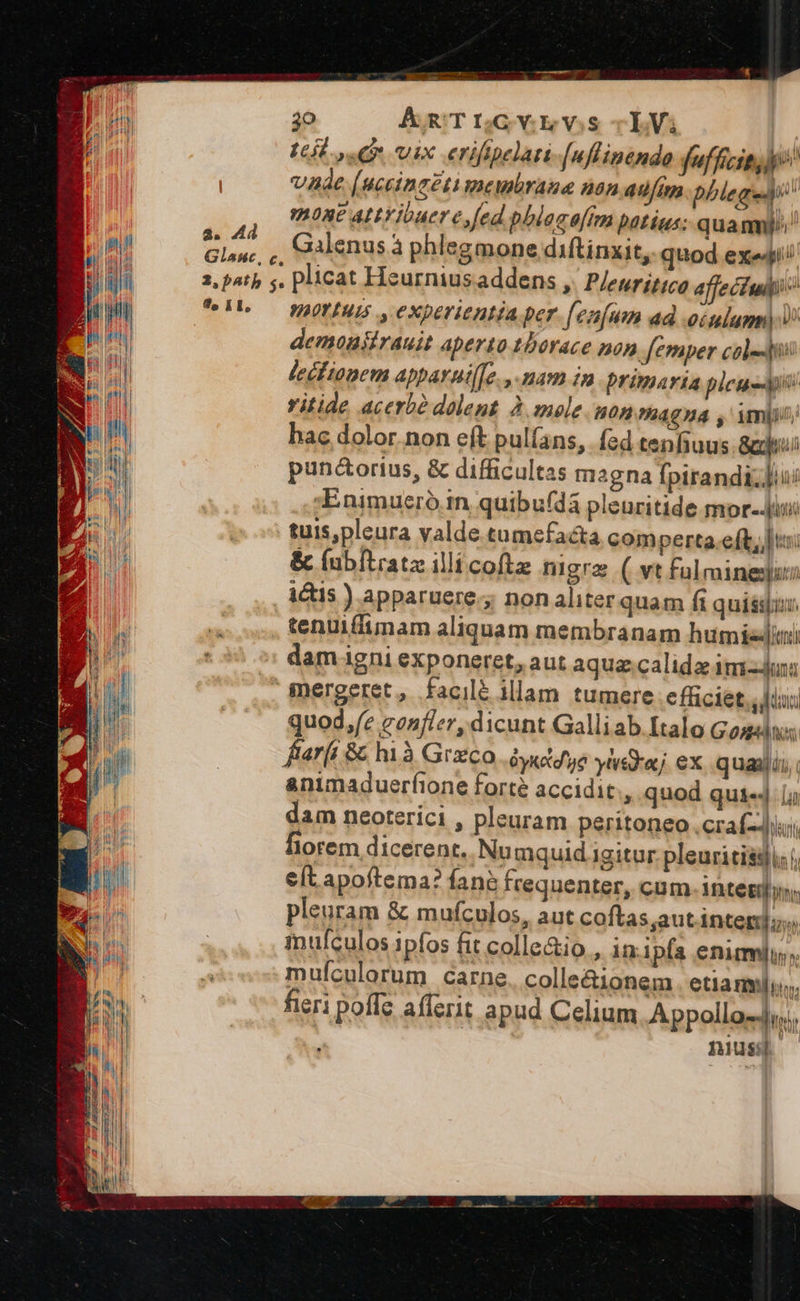 30 ARTICVLVS LV.
test, & vix erisipelati sustinendo sufficit,
vnde succingēti membranæ non ausim phleg-
monē attribuere, sed phlogosim potius: quam
a. Ad
Glauc. c.
2, path 5.
fo 11.
Galenus à phlegmone distinxit, quod ex-
plicat Heurnius addens, Pleuritico affectu
mortuis, experientia per sensum ad oculum
demonstrauit aperto thorace non semper col-
lectionem apparuisse, nam in primaria pleu-
ritide acerbè dolent à mole non magna, in
hac dolor non est pulsans, sed tensiuus &
punctorius, & difficultas magna spirandi.
Enimuerò in quibusdā pleuritide mor-
tuis, pleura valde tumefacta comperta est,
& substratæ illi costæ nigræ (vt fulmine
ictis) apparuere; non aliter quam si quis
tenuissimam aliquam membranam humi-
dam igni exponeret, aut aquæ calidæ im-
mergeret, facilè illam tumere efficiet,
quod, se gonfler, dicunt Galli ab Italo Gon-
fiarsi & hi à Græco ὀγκώδης γίνεθαι ex qua
animaduersione fortè accidit, quod qui-
dam neoterici, pleuram peritoneo cras-
siorem dicerent. Numquid igitur pleuritis
est apostema? sanè frequenter, cum inter
pleuram & musculos, aut costas, aut inter
musculos ipsos fit collectio, in ipsa enim
musculorum carne collectionem etiam
fieri posse asserit apud Celium Appollo-
nius